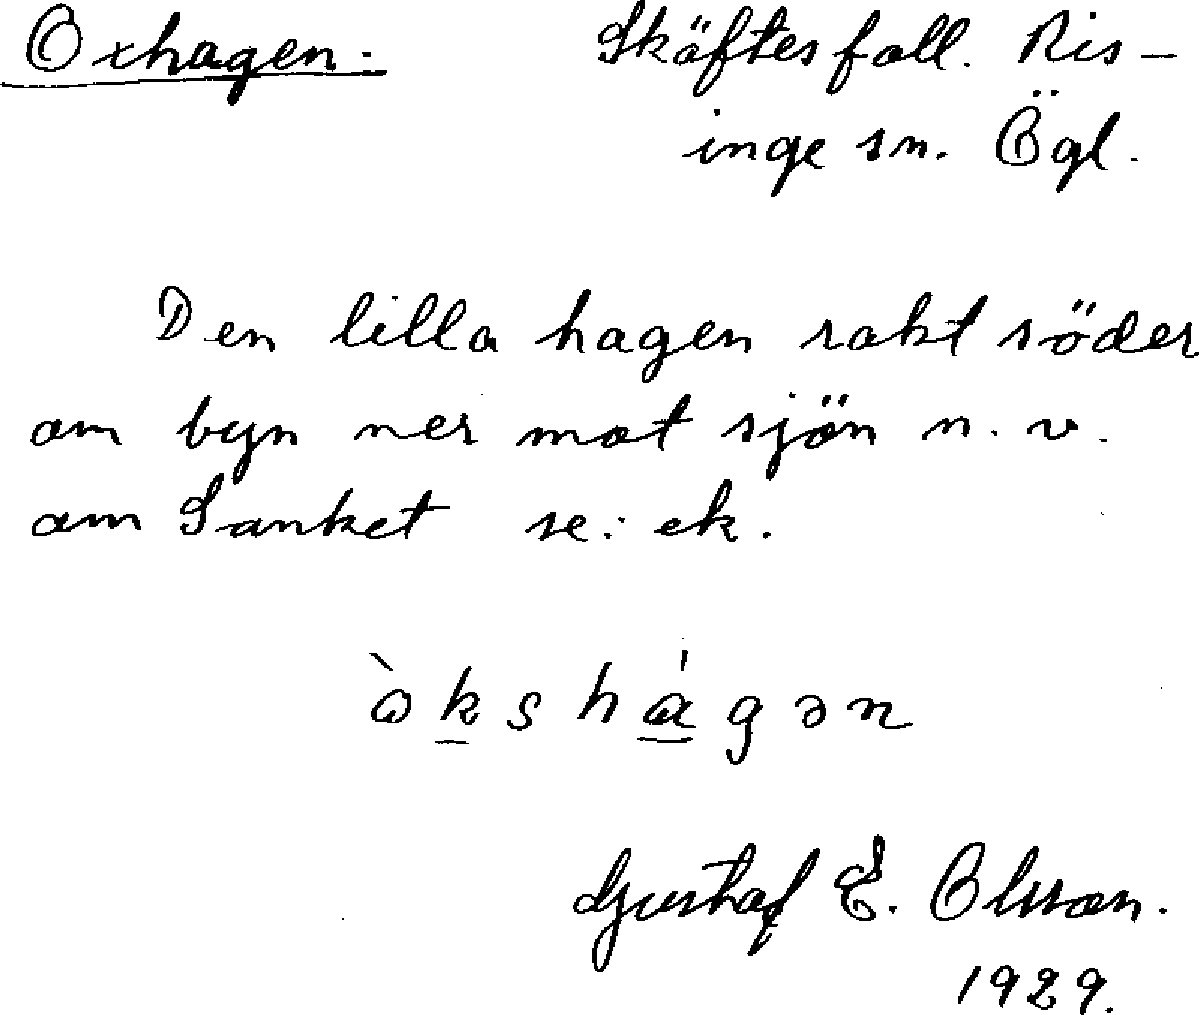 Oxhagen.
Skäftesfall. Ris-
inge sn. Ögl.
Den lilla hagen rakt söder
om byn ner mot sjön n. v.
om Sanket se: ek.
òkshágən
Gustaf E. Olsson.
1929.